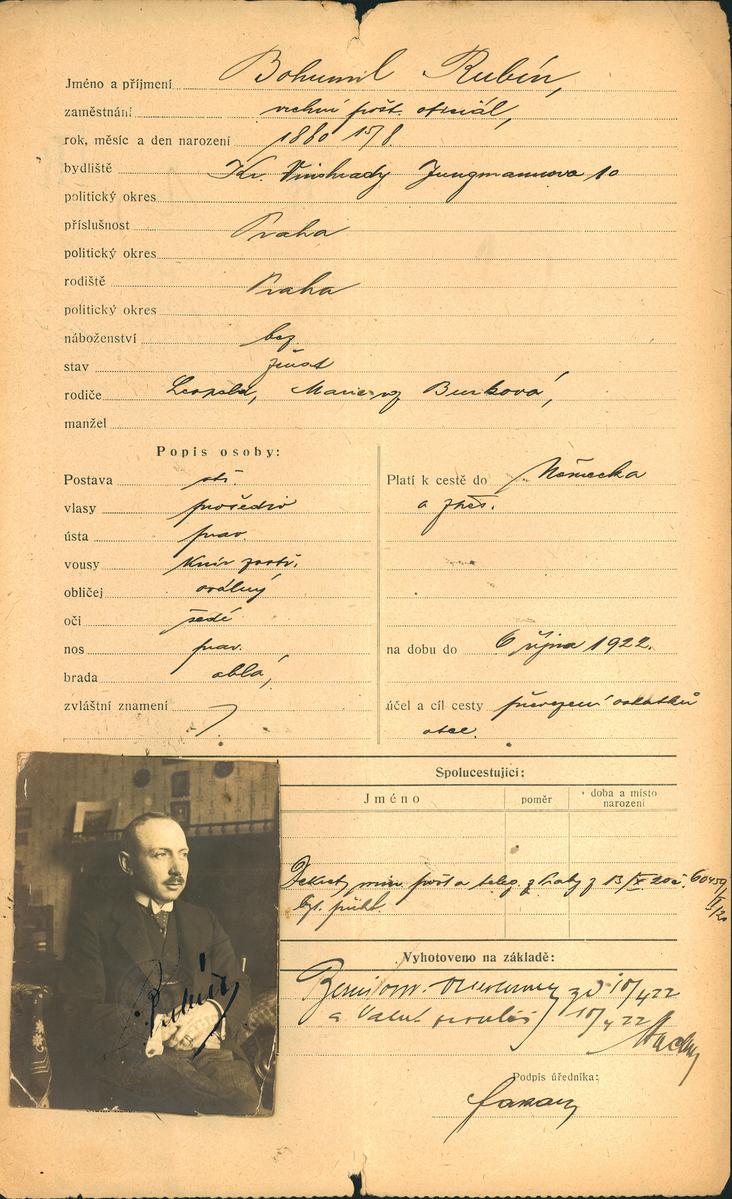 Jméno a příjmení Bohumil Rubín,
zaměstnání vrchní pošt. oficiál,
rok, měsíc a den narození 1880 15/8.
bydliště Kr. Vinohrady Jungmannova 10
politický okres
příslušnost Praha
politický okres
rodiště Praha
politický okres
náboženství bez
stav ženat
rodiče Leopold, Marie roz Burková,
manžel
Popis osoby:
Postava stř.
vlasy prošediv
ústa prav.
vousy knír zastř.
obličej oválný
oči šedé
nos prav.
brada oblá,
zvláštní znamení
Platí k cestě do Německa
a zpět.
na dobu do 6 října 1922.
účel a cíl cesty převezení ostatků
otce.
Spolucestující:
Jméno poměr doba a místo narození
Dekrety min. pošt a teleg. z Prahy z 13/IX 20 č. 60459/
byl předl.
Vyhotoveno na základě:
10/4 22
a 10/4 22
Podpis úředníka:
Rubín